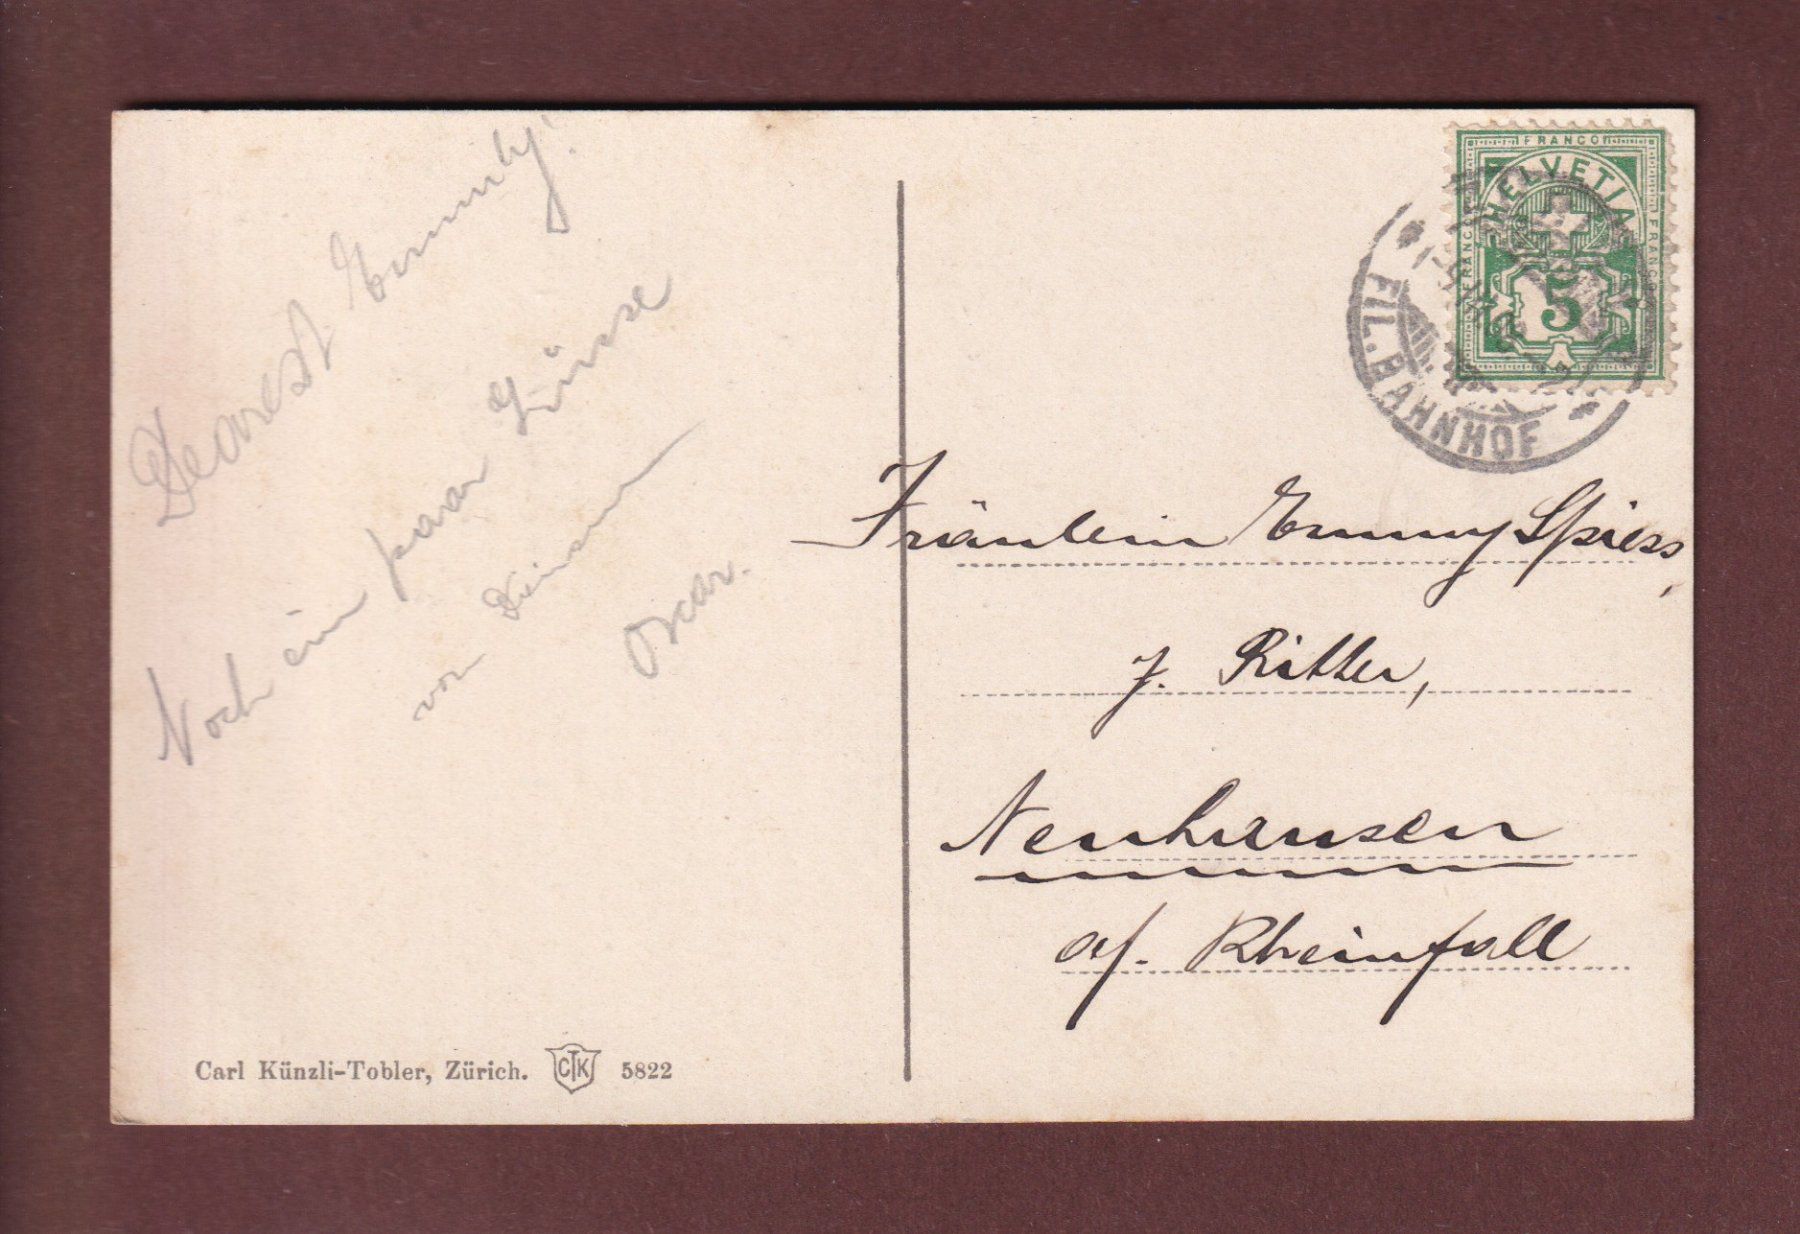 Dearest Emmily!
Noch ein paar Grüsse
von Deinem
Oscar.
Carl Künzli-Tobler, Zürich. CTK 5822
FRANCO
HELVETIA
FRANCO
FRANCO
5
FIL. BAHNHOF
Fräulein Emmy Spiess,
z. Ritter,
Neuhausen
a/. Rheinfall